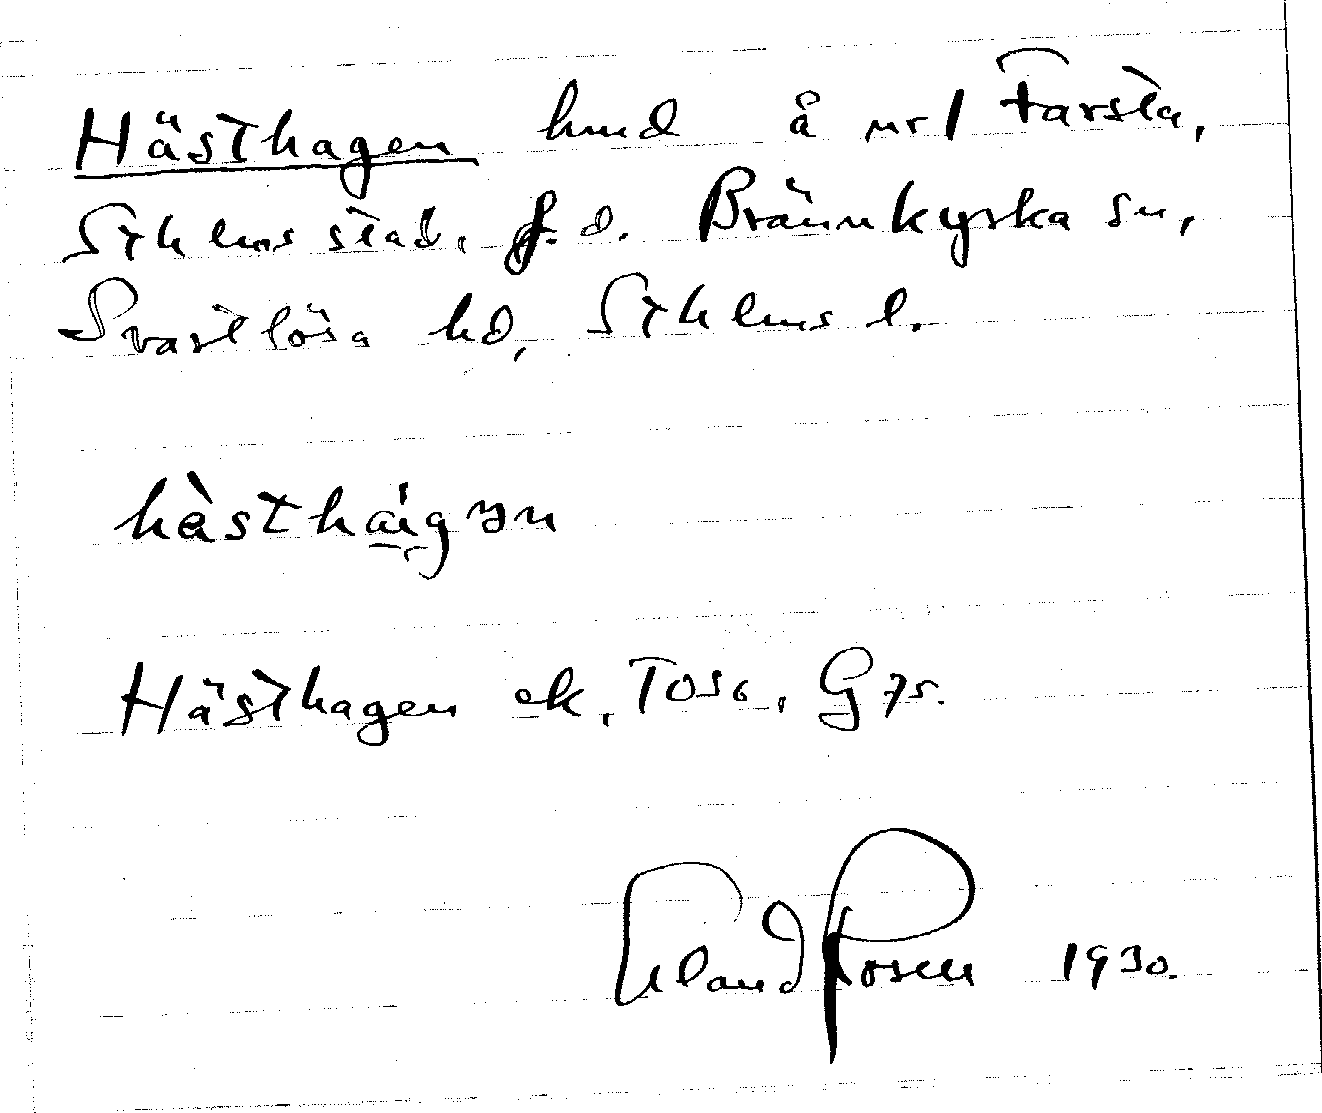 Hästhagen hmd å nr 1 Farsta,
Sthlms stad, f.d. Brännkyrka sn,
Svartlösa hd, Sthlms l.
Hästhagen ek. Tosc. G 75.
Erland Rosen 1930.